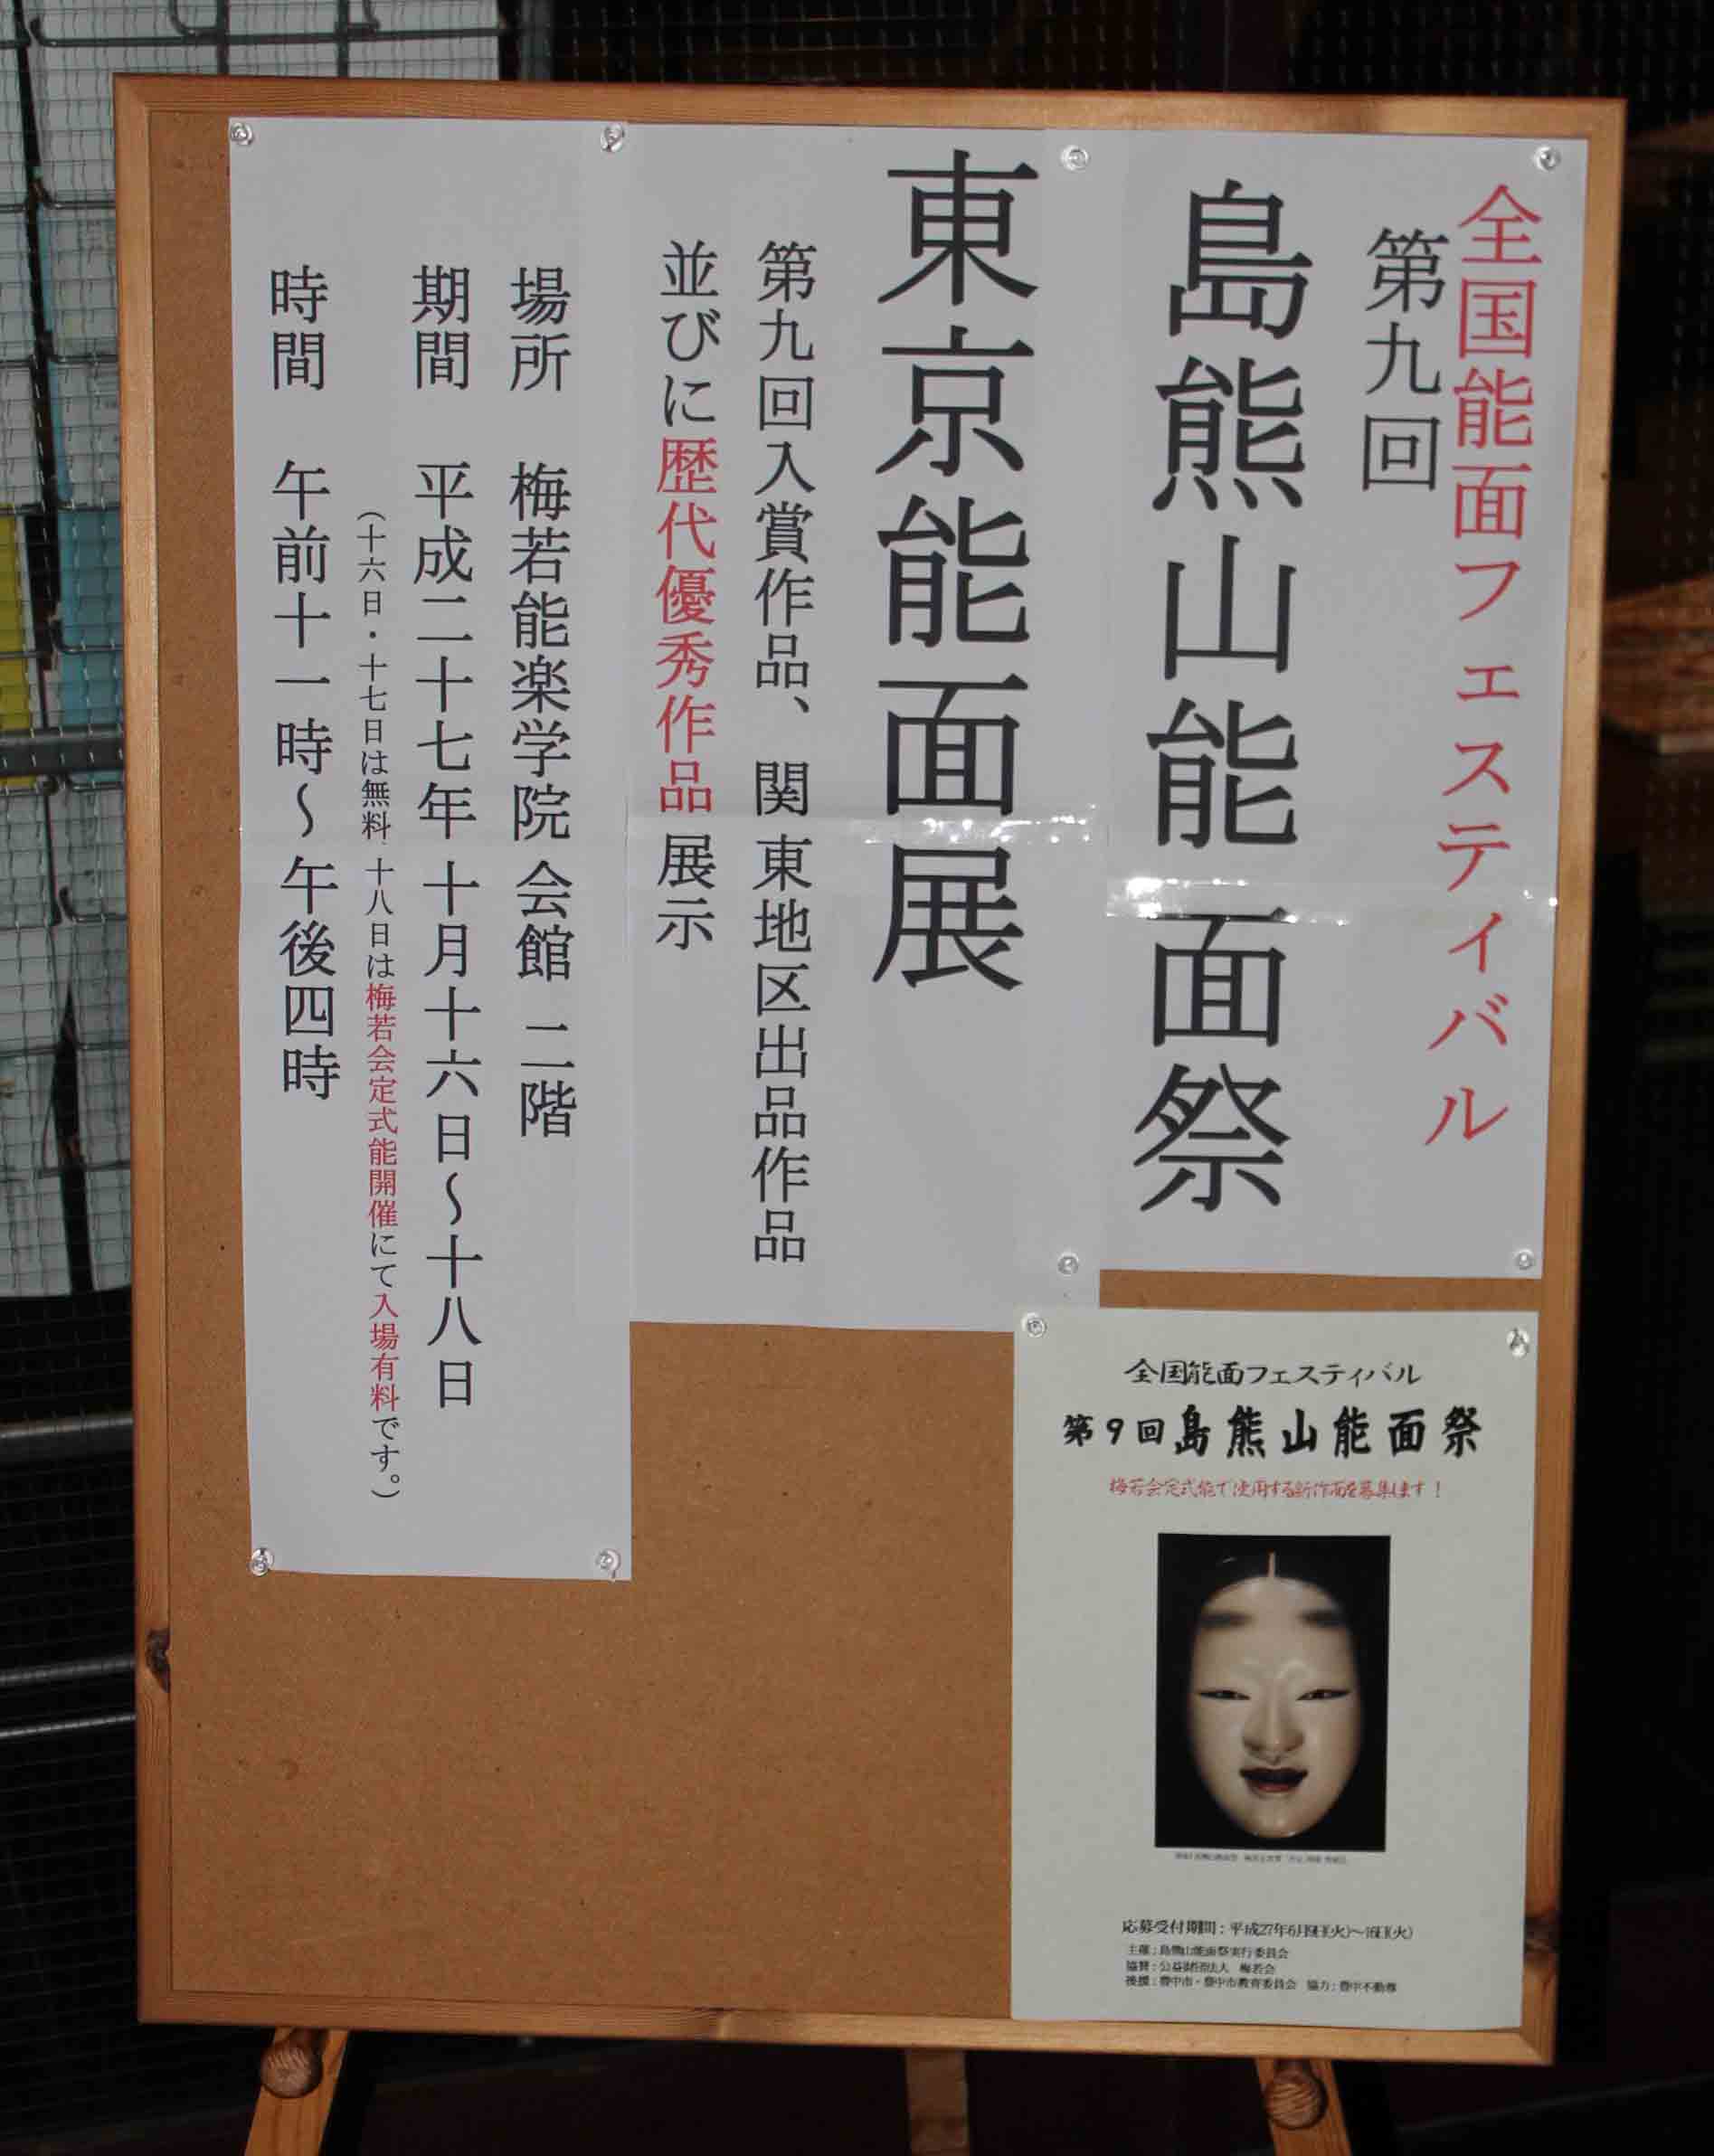 全国能面フェスティバル
第九回
島熊山能面祭
東京能面展
第九回入賞作品、関東地区出品作品
並びに歴代優秀作品展示
場所 梅若能楽学院会館 二階
期間 平成二十七年十月十六日～十八日
（十六日・十七日は無料 十八日は梅若会定式能開催にて入場有料です。）
時間 午前十一時～午後四時
全国能面フェスティバル
第9回島熊山能面祭
梅若会定式能で使用する新作面を募集します！
応募受付期間：平成27年6月9日(火)～16日(火)
主催：島熊山能面祭実行委員会
協賛：公益財団法人 梅若会
後援：豊中市・豊中市教育委員会 協力：豊中不動尊